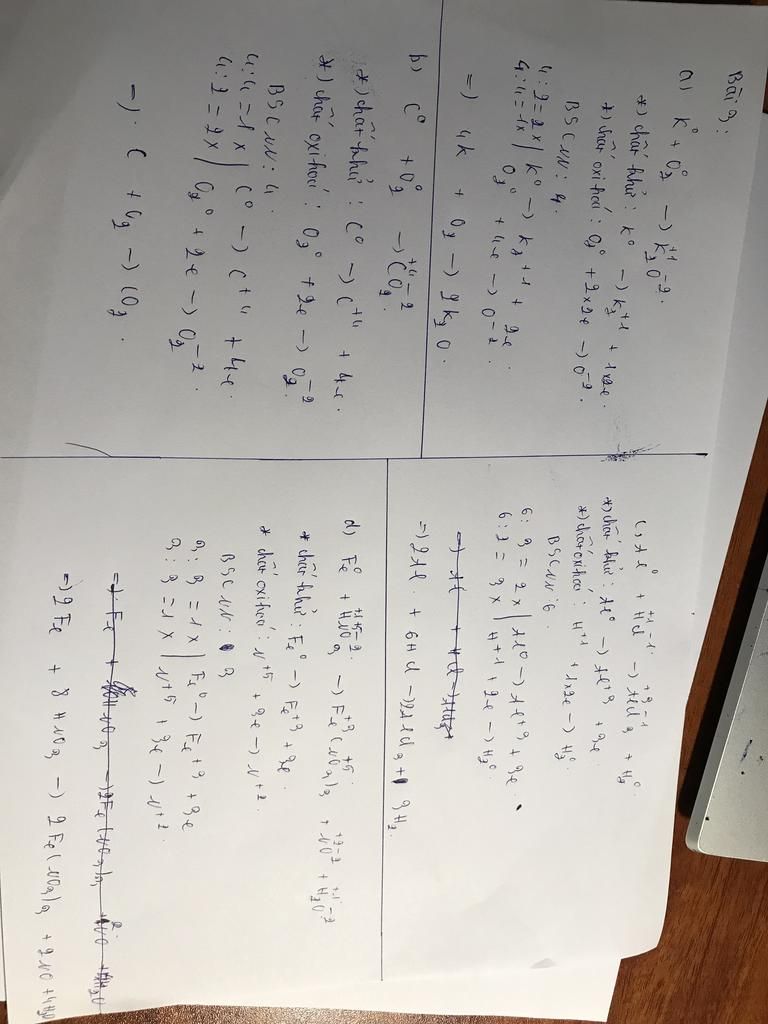 Bài 3:
a) K⁰ + O₂⁰ —) K₂⁺¹O⁻².
*) chất khử: K⁰ —) K₂⁺¹ + 1x2e.
*) chất oxi hoá: O₂⁰ + 2x2e —) O⁻².
BSCNN: 4.
4:2=2x | K⁰ —) K₂⁺¹ + 2e.
4:4=1x | O₂⁰ + 4e —) O⁻².
=) 4K + O₂ —) 2K₂O.
b) C⁰ + O₂⁰ —) C⁺⁴O₂⁻².
*) chất khử: C⁰ —) C⁺⁴ + 4e.
*) chất oxi hoá: O₂⁰ + 2e —) O₂⁻².
BSCNN: 4.
4:4=1x | C⁰ —) C⁺⁴ + 4e.
4:2=2x | O₂⁰ + 2e —) O₂⁻².
—) C + O₂ —) CO₂.
c) Al⁰ + H⁺¹Cl⁻¹ —) Al⁺³Cl₃⁻¹ + H₂⁰.
*) chất khử: Al⁰ —) Al⁺³ + 3e.
*) chất oxi hoá: H⁺¹ + 1x2e —) H₂⁰.
BSCNN: 6.
6:3=2x | Al⁰ —) Al⁺³ + 3e.
6:2=3x | H⁺¹ + 2e —) H₂⁰.
=) 2Al + 6HCl —) 2AlCl₃ + 3H₂.
d) Fe⁰ + H⁺¹N⁺⁵O₃⁻² —) Fe⁺³(N⁺⁵O₃)₃ + N⁺²O⁻² + H₂⁺¹O⁻².
* chất khử: Fe⁰ —) Fe⁺³ + 3e.
* chất oxi hoá: N⁺⁵ + 3e —) N⁺².
BSCNN: 3
3:3=1x | Fe⁰ —) Fe⁺³ + 3e
3:3=1x | N⁺⁵ + 3e —) N⁺².
=) 2Fe + 8HNO₃ —) 2Fe(NO₃)₃ + 2NO + 4H₂O